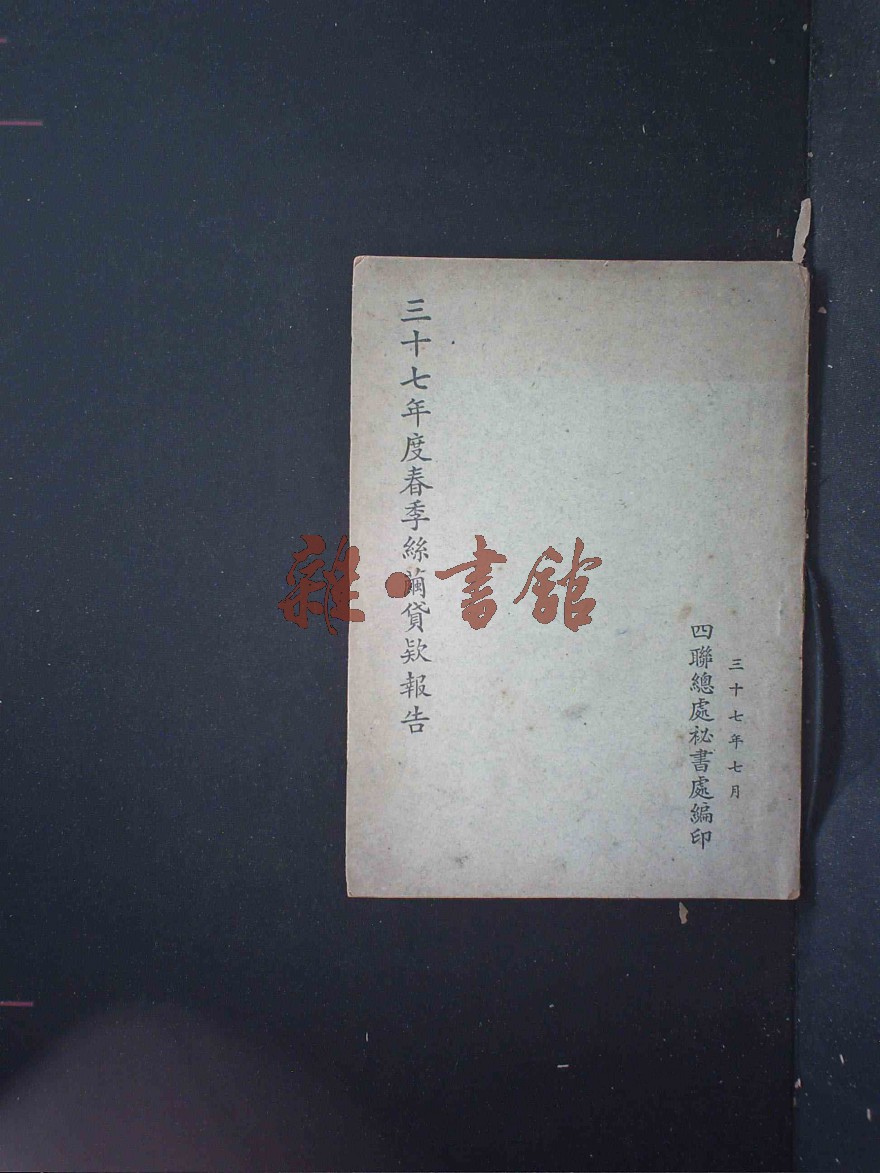 三十七年七月
四聯總處祕書處編印
三十七年度春季絲繭貸欵報告
雜·書館